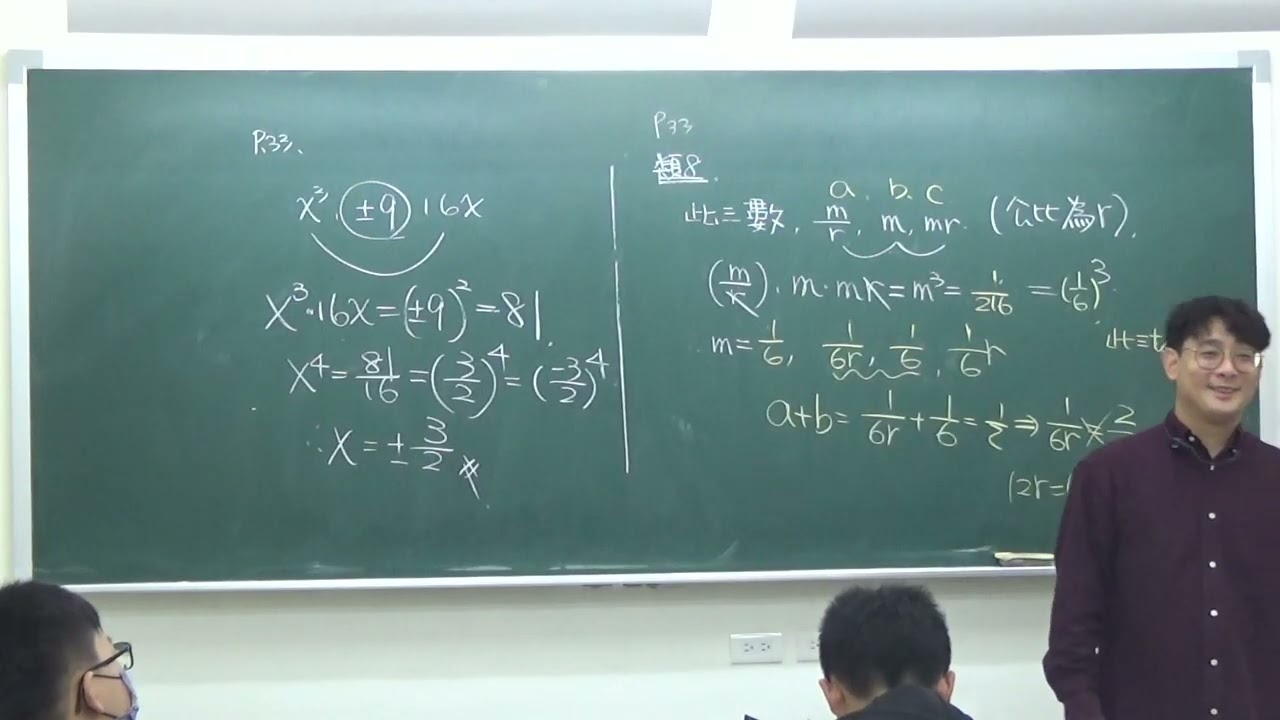 P.33、
x³, ±9, 16x
x³·16x=(±9)²=81.
x⁴=81/16=(3/2)⁴=(-3/2)⁴
∴x=±3/2
P33
類8.
a. b. c
此三數, m/r, m, mr. (公比為r).
(m/r)·m·mr=m³=1/216=(1/6)³.
m=1/6, 1/6r, 1/6, 1/6r
此三
a+b=1/6r+1/6=1/2⇒1/6r 2
12r=